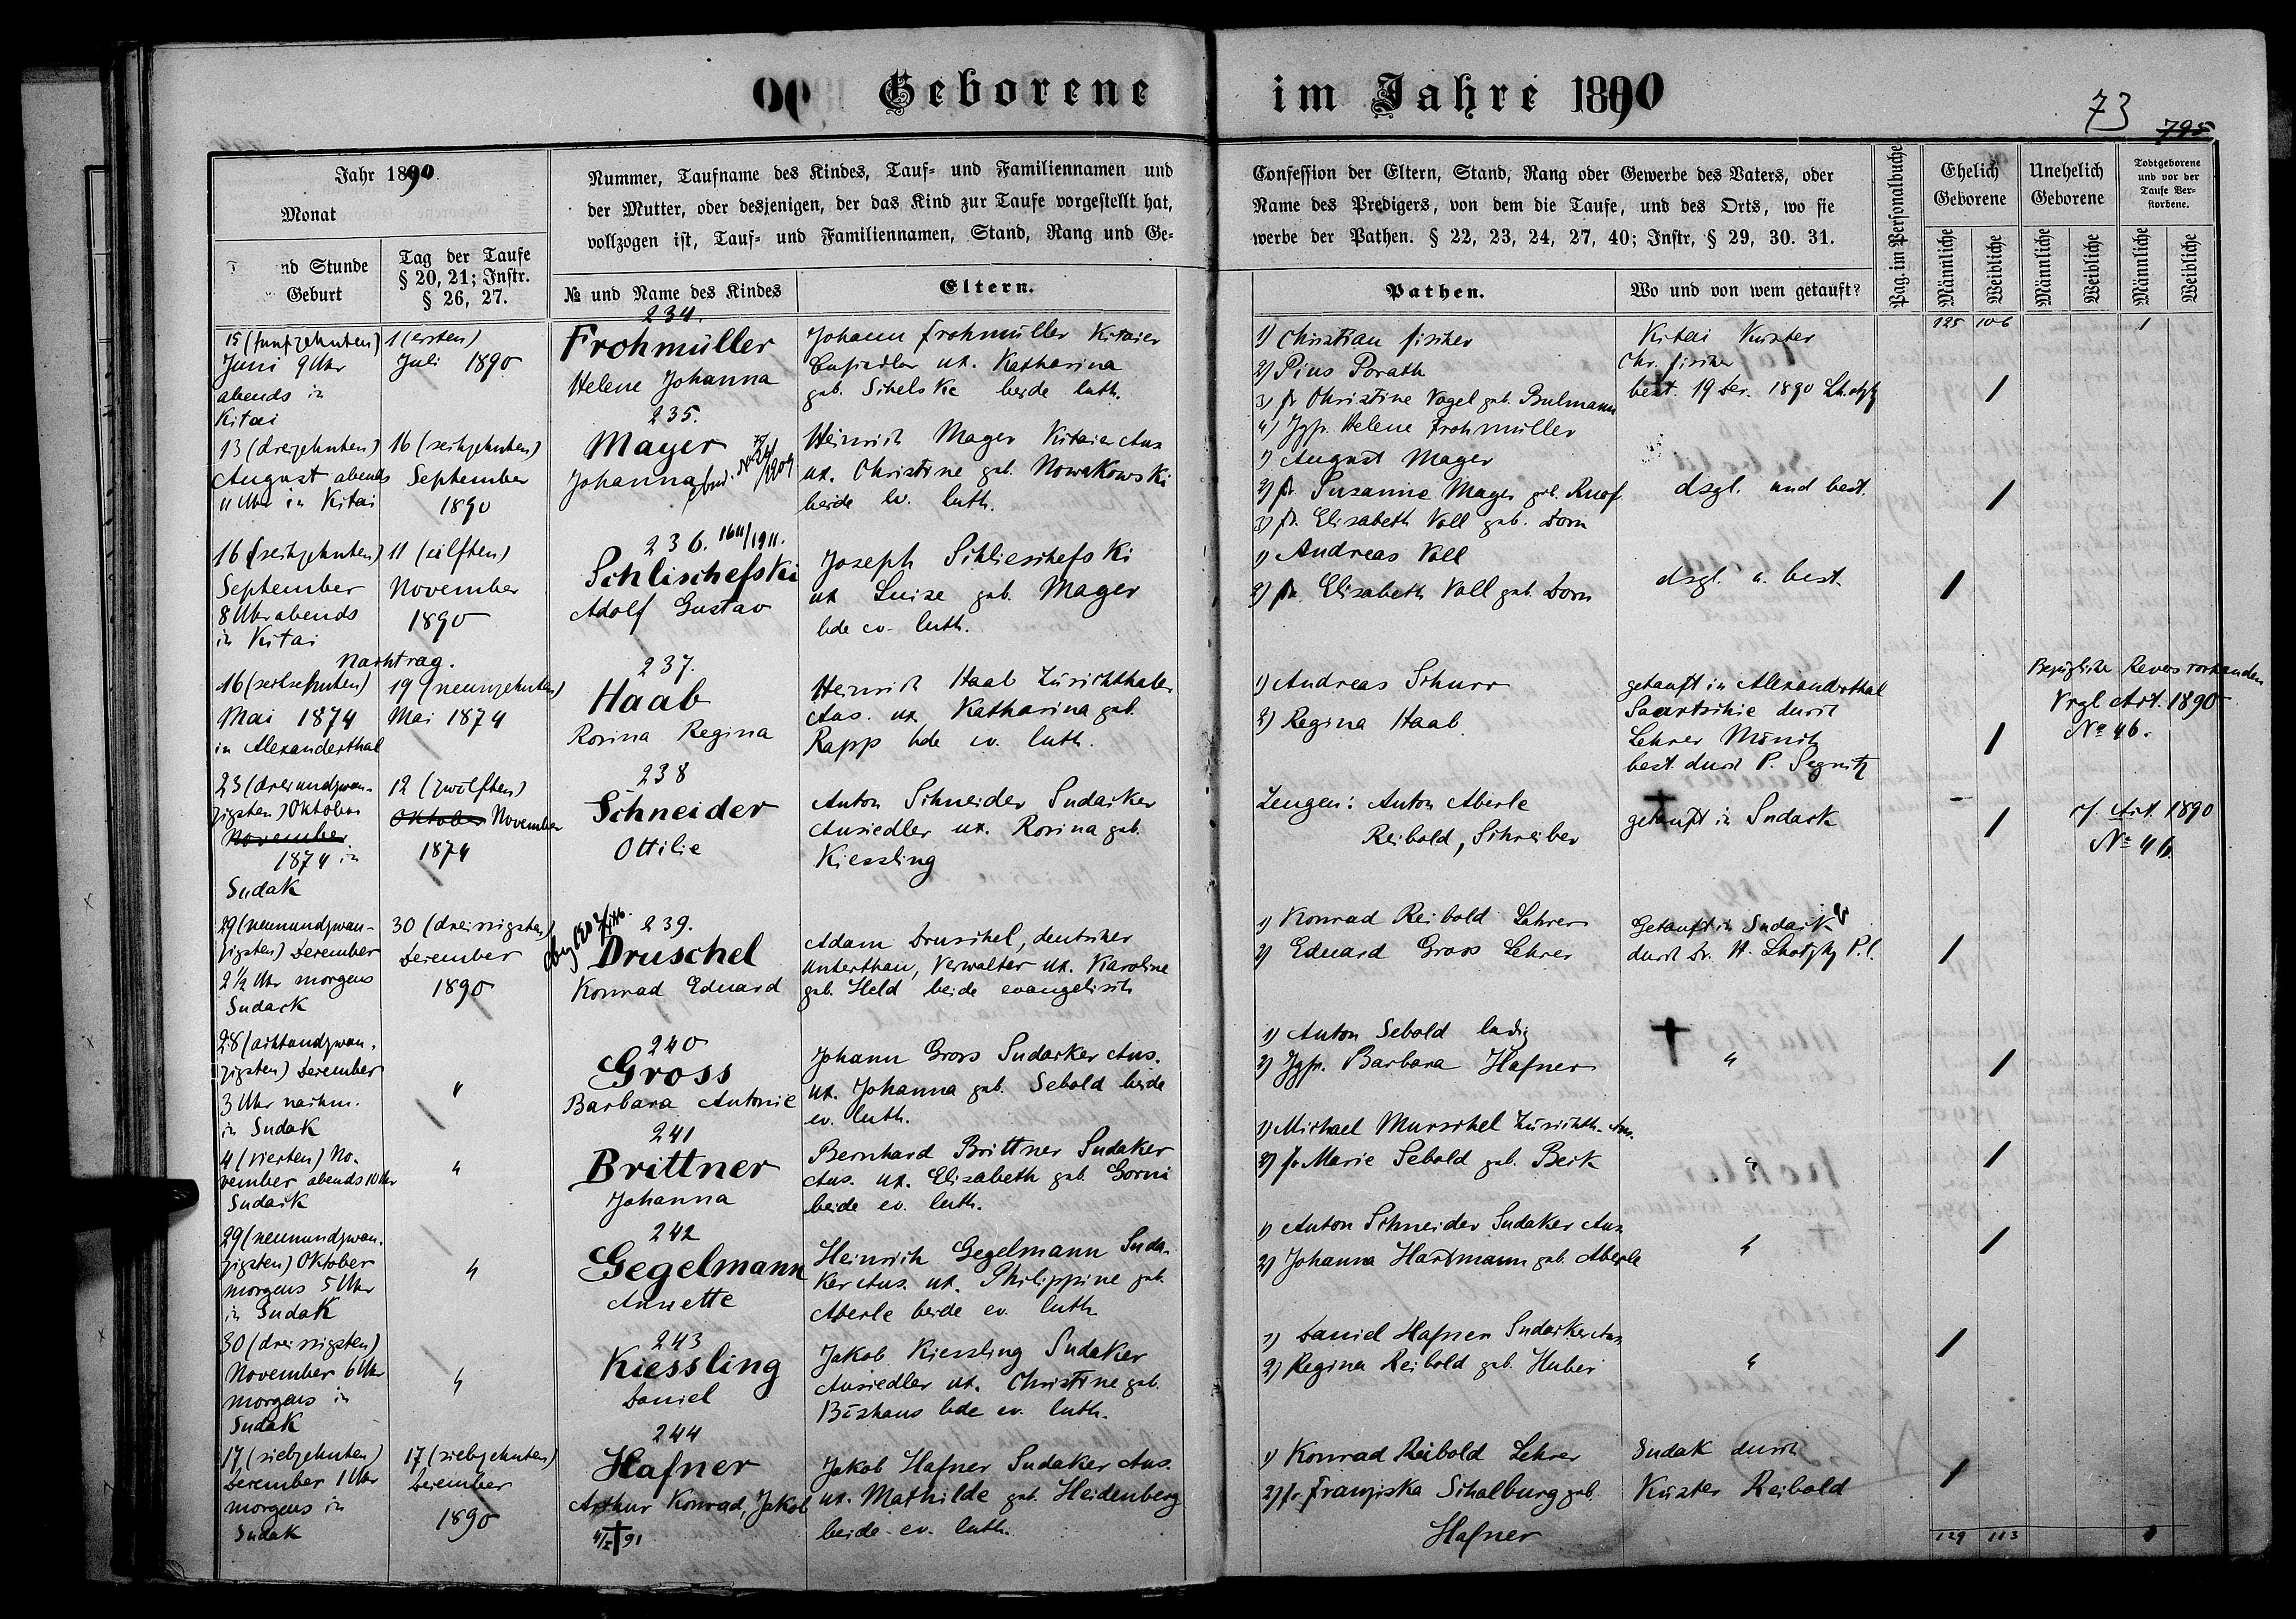 Geborene im Jahre 1890
73
795
Jahr 1890.
Monat
nd Stunde
Geburt
Tag der Taufe
§ 20, 21; Instr.
§ 26, 27.
Nummer, Taufname des Kindes, Tauf- und Familiennamen und
der Mutter, oder desjenigen, der das Kind zur Taufe vorgestellt hat,
vollzogen ist, Tauf- und Familiennamen, Stand, Rang und Ge-
№ und Name des Kindes
Eltern.
Confession der Eltern, Stand, Rang oder Gewerbe des Vaters, oder
Name des Predigers, von dem die Taufe, und des Orts, wo sie
werbe der Pathen. § 22, 23, 24, 27, 40; Instr, § 29, 30. 31.
Pathen.
Wo und von wem getauft?
Pag. im Personalbuche
Ehelich
Geborene
Unehelich
Geborene
Todtgeborene
und vor der
Taufe Ver-
storbene.
Männliche
Weibliche
Männliche
Weibliche
Männliche
Weibliche
125 106 1
15 (funfzehnten)
Juni 9 Uhr
abends in
Kitai
1 (ersten)
Juli 1890
234.
Frohmüller
Helene Johanna
Johann Frohmüller Kitaier
ux. Katharina
geb. Schelske beide luth.
1) Christian Fischer
2) Pius Porath
3) fr. Christine Vogel geb. Bulmann
4) Jgfr. Helene Frohmüller
Kitai Küster
Chr. Fischer
best. 19 Dec. 1890 Lhotzky
13 (dreizehnten)
August abends
11 Uhr in Kitai
16 (sechzehnten)
September
1890
235.
Mayer
Johanna
Heinrich Mayer Kitaier Ans.
ux. Christine geb. Nowakowski
beide ev. luth.
1) August Mayer
2) fr. Susanne Mayer geb. Knof
3) fr. Elisabeth Voll geb. Dorn
dsgl. und best.
16 (sechzehnten)
September
8 Uhr abends
in Kitai
11 (eilften)
November
1890
236. 1611/1911.
Schlischefski
Adolf Gustav
Joseph Schlieschefski
ux Luise geb. Mayer
bde ev. luth.
1) Andreas Voll
2) fr. Elisabeth Voll geb. Dorn
dsgl. u. best.
Nachtrag.
16 (sechsehnten)
Mai 1874
in Alexanderthal
19 (neunzehnten)
Mai 1874
237.
Haab
Rosina Regina
Heinrich Haab Zürichthaler
Ans. ux. Katharina geb.
Rapp bde ev. luth.
1) Andreas Schurr
2) Regina Haab.
getauft in Alexanderthal
durch
Lehrer Münch
best. durch P. Segnitz
Bezügliche Revers vorhanden
Vrgl Act. 1890
№ 46.
23 (dreiundzwan-
zigsten) Oktober
November
1874 in
Sudak
12 (zwölften)
Oktober November
1874
238
Schneider
Ottilie
Anton Schneider Sudacker
Ansiedler ux. Rosina geb.
Kiessling
Zeugen: Anton Aberle
Reibold, Schreiber
getauft in Sudack
cf. Act. 1890
№ 46.
29 (neunundzwan-
zigsten) December
2½ Uhr morgens
Sudack
30 (dreissigsten)
December
1890
239.
Druschel
Konrad Eduard
Adam Druschel, deutscher
Unterthan, Verwalter ux. Karoline
geb. Held beide evangelisch
1) Konrad Reibold Lehrer
2) Eduard Gross Lehrer
Getauft in Sudack
durch Dr. H. Lhotzky P.l.
28 (achtundzwan-
zigsten) December
3 Uhr nachm.
in Sudak
"
240
Gross
Barbara Antonie
Johann Gross Sudacker Ans.
ux. Johanna geb. Sebold beide
ev. luth.
1) Anton Sebold ledig
2) Jgfr. Barbara Hafner
"
4 (vierten) No-
vember abends 10 Uhr
Sudack
"
241
Brittner
Johanna
Bernhard Brittner Sudaker
Ans. ux. Elisabeth geb. Gorni
beide ev. luth.
1) Michael Murschel Zürichth. Ans.
2) fr. Marie Sebold geb. Beck
"
29 (neunundzwan-
zigsten) Oktober
morgens 5 Uhr
in Sudak
"
242
Gegelmann
Annette
Heinrich Gegelmann Suda-
ker Ans. ux. Philippine geb.
Aberle beide ev. luth
1) Anton Schneider Sudaker Ans.
2) Johanna Hartmann geb. Aberle
"
30 (dreissigsten)
November 6 Uhr
morgens in
Sudak
"
243
Kiessling
Daniel
Jakob Kiessling Sudaker
Ansiedler ux. Christine geb.
bde ev. luth.
1) Daniel Hafner Sudacker Ans.
2) Regina Reibold geb. Huber
"
17 (siebzehnten)
December 1 Uhr
morgens in
Sudak
17 (siebzehnten)
December
1890
244
Hafner
Arthur Konrad, Jakob
Jakob Hafner Sudaker Ans.
ux. Mathilde geb. Heidenberg
beide ev. luth.
1) Konrad Reibold Lehrer
2) fr. Franziska Schalburg geb.
Hafner
Sudak durch
Küster Reibold
129 113